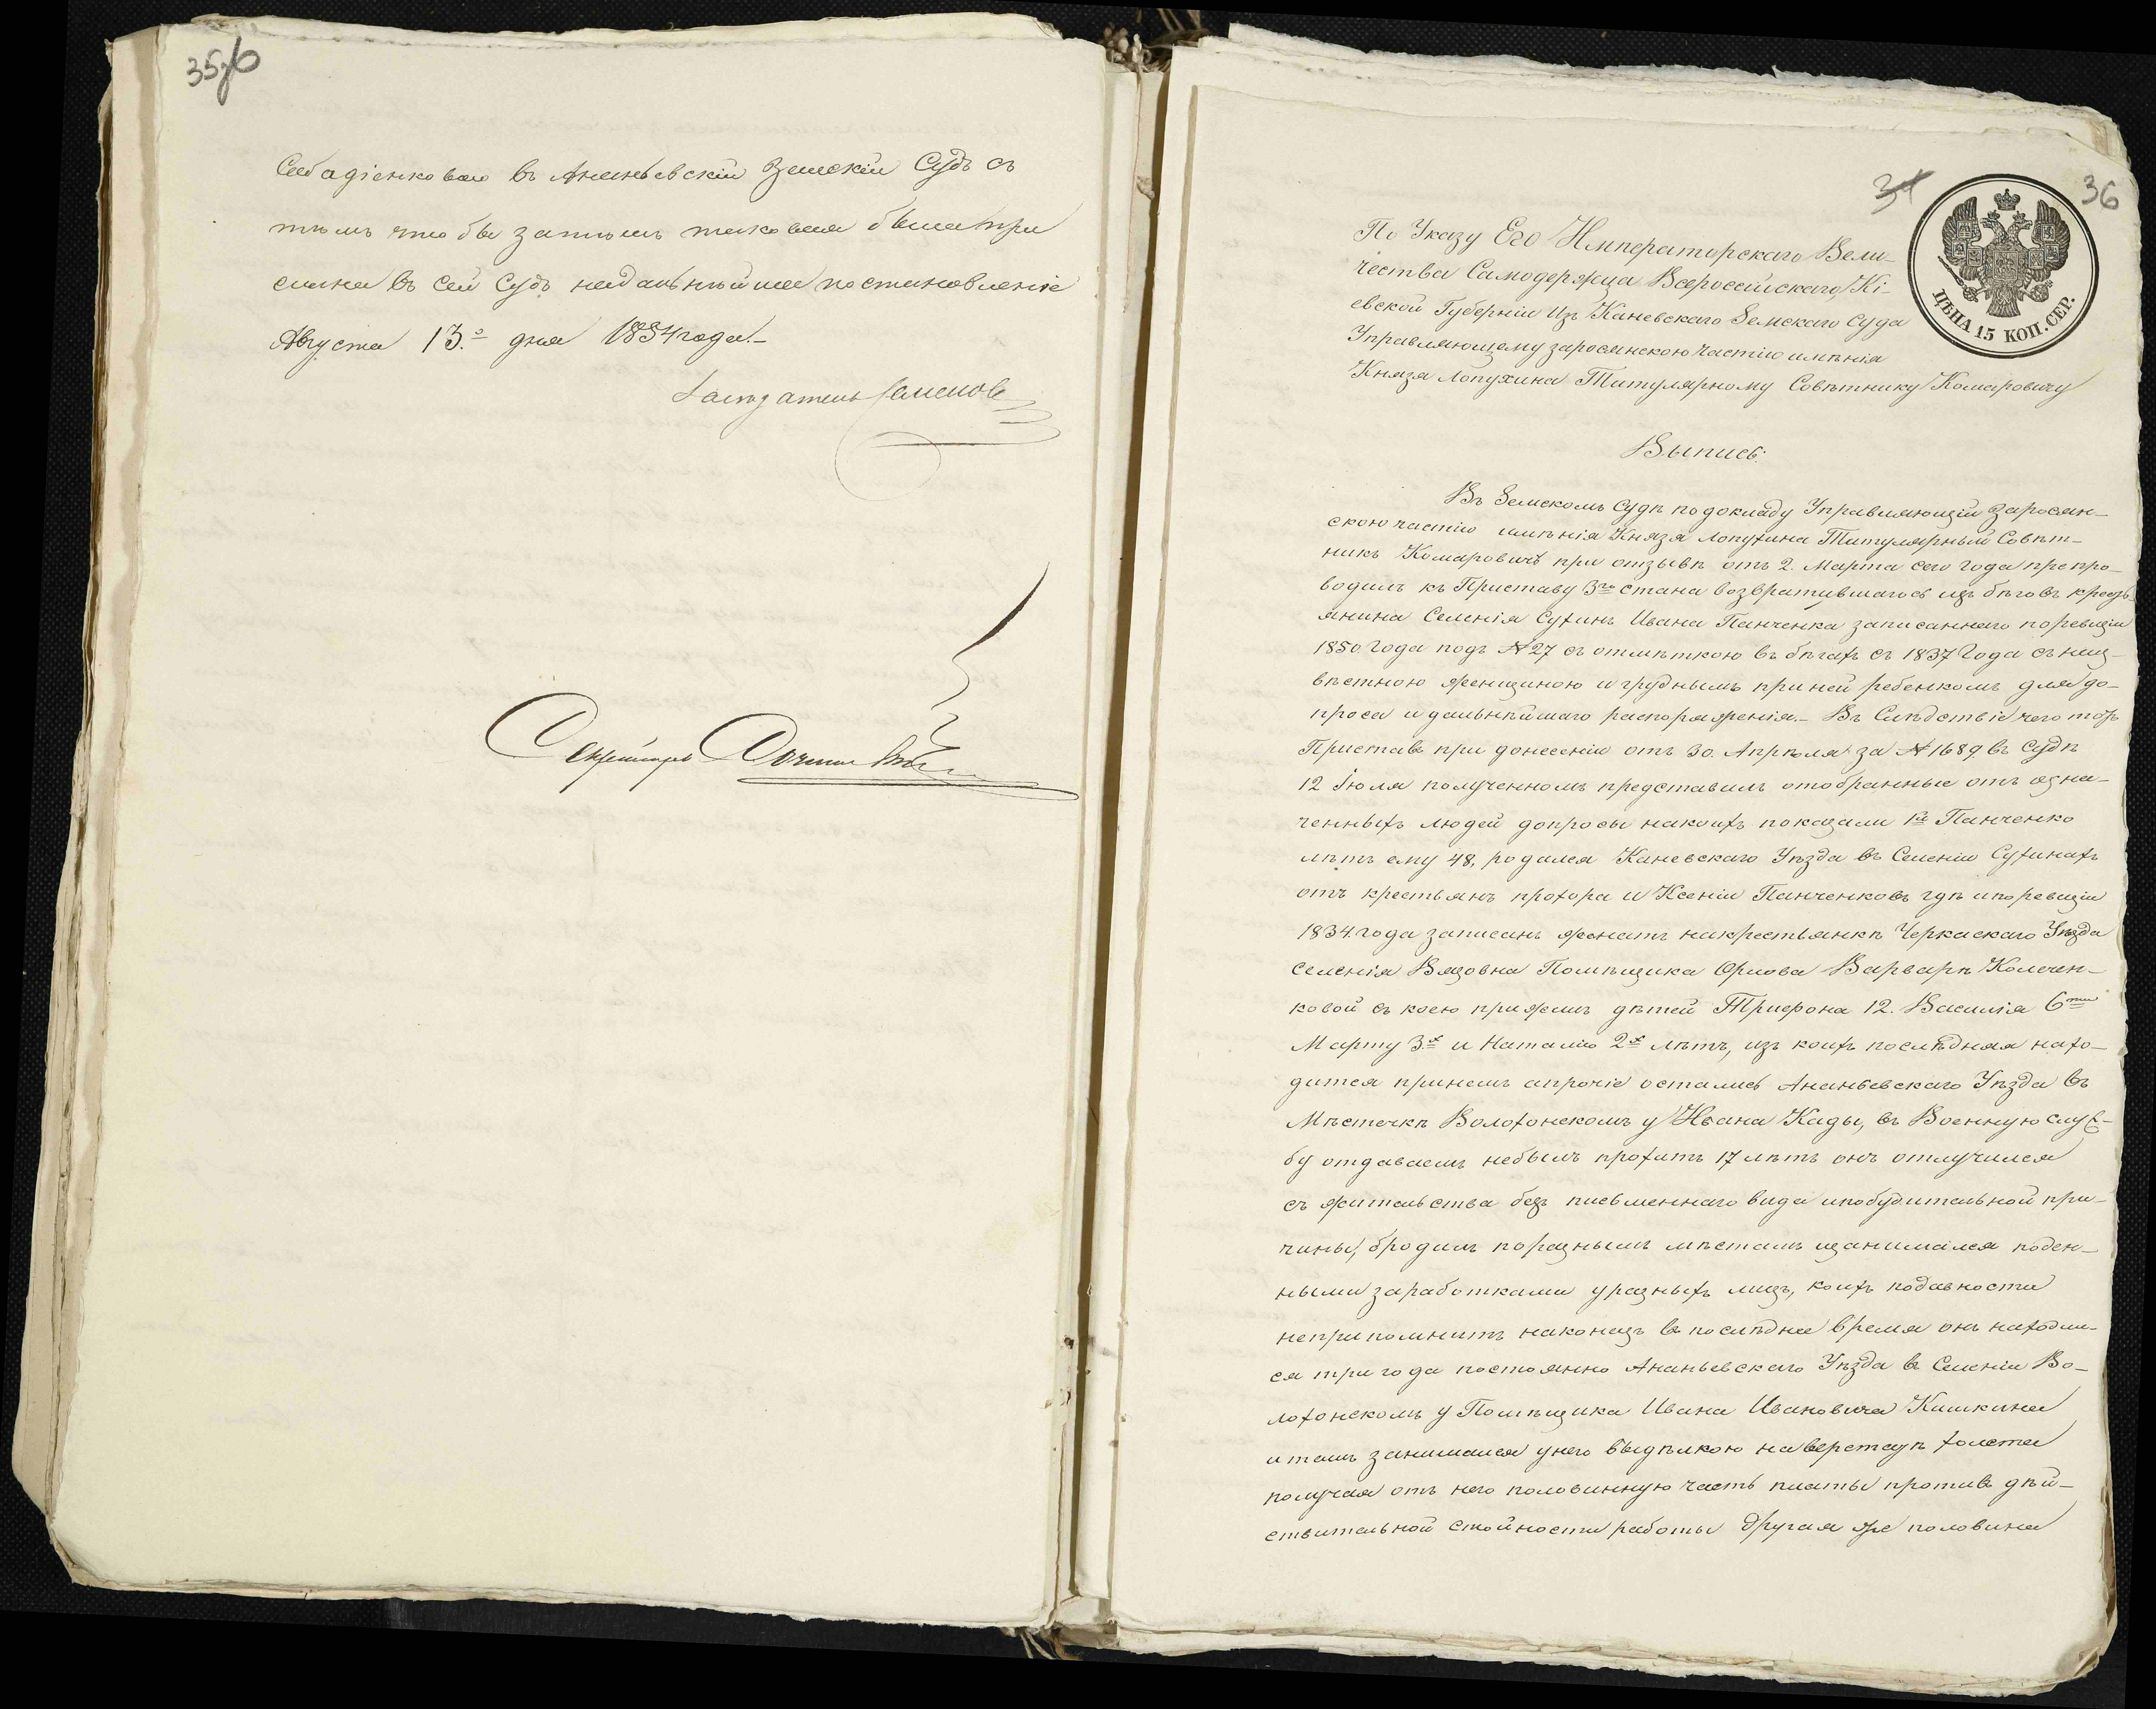 35об
Слободіенковою въ Ананьевскій Земскій Судъ съ
тѣмъ что бы затѣмъ таковая была при
слана въ сей Судъ на дальнѣйшее постановленіе
Августа 13.го дня 1854 года.
Засѣдатель Семенов
Секретарь
34
36
ЦѢНА 15 КОП. СЕР.
По Указу Его Императорскаго Вели-
чества Самодержца Всероссійскаго, Кі-
евской Губерніи Изъ Каневскаго Земскаго Суда
Управляющему заросянскою Частію имѣнія
Князя Лопухина Титулярному Совѣтнику Комаровичу
Выпись:
Въ Земскомъ Судѣ по докладу Управляющій Заросян-
скою частію имѣнія Князя Лопухина Титулярный Совѣт-
никъ Комаровичъ при отзывѣ отъ 2. Марта сего года препро-
водилъ къ Приставу 3го стана возвратившагося изъ бѣговъ кресть-
янина Селенія Сухинъ Ивана Панченка записаннаго по ревизіи
1850. года подъ № 27 съ отмѣткою въ бѣгахъ съ 1837 года съ неиз-
вѣстною женщиною и груднымъ при ней ребенкомъ для до-
проса и дальнѣйшаго распоряженія. Въ Слѣдствіе чего тотъ
Приставъ при донесеніи отъ 30. Апрѣля за № 1689. въ Судѣ
12 Іюля полученномъ представилъ отобранные отъ озна-
ченныхъ людей допросы на коихъ показали 1й Панченко
лѣтъ ему 48, родился Каневскаго Уѣзда въ Селеніи Сухинахъ
отъ крестьянъ прохора и Ксеніи Панченковъ гдѣ и по ревизіи
1834. года записанъ женатъ на крестьянкѣ Черкаскаго Уѣзда
селенія Вязовна Помѣщика Орлова Варварѣ Колечен-
ковой съ коею прижилъ дѣтей Трифона 12. Василія 6ти
Марту 3х и Наталію 2х лѣтъ, изъ коихъ послѣдняя нахо-
дится при немъ а прочіе остались Ананьевскаго Уѣзда въ
Мѣстечкѣ Волохонскомъ у Ивана Кады, въ Военную служ-
бу отдаваемъ небылъ прохитъ 17 лѣтъ онъ отлучился
съ жительства безъ письменнаго вида и побудительной при-
чины, бродилъ по разнымъ мѣстамъ и занимался поден-
ными заработками у разныхъ лицъ, коихъ по давности
неприпомнитъ наконецъ въ послѣднее время онъ находил-
ся три года постоянно Ананьевскаго Уѣзда въ Селеніи Во-
лохонскомъ у Помѣщика Ивана Ивановича Кишкина
и тамъ занимался у него выдѣлкою на верстаткѣ холста
получая отъ него половинную часть платы противъ дѣй-
ствительной стойности работы другая же половина